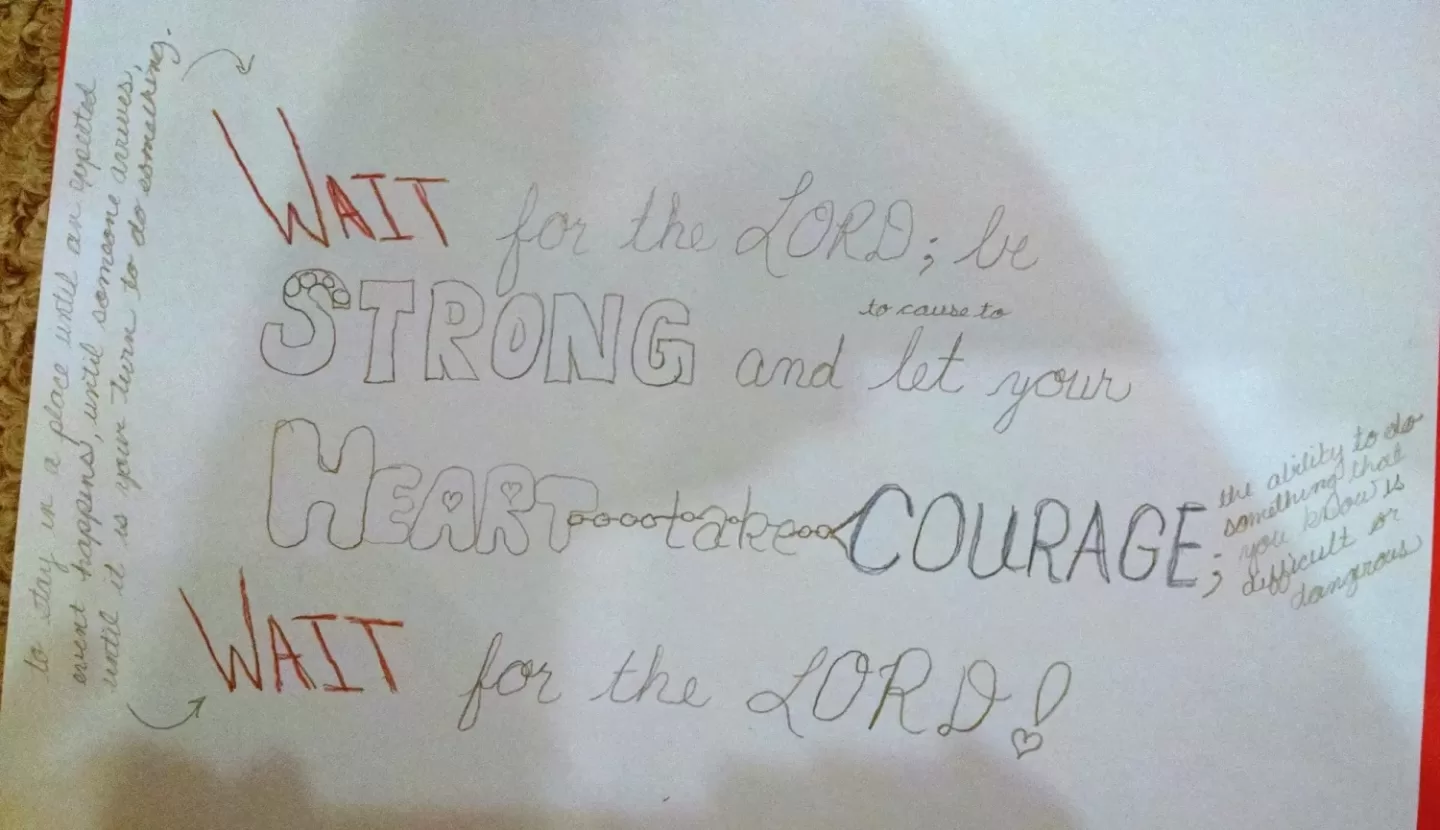 to stay in a place until an expected
event happens, until someone arrives,
until it is your turn to do something.
WAIT for the LORD; be
to cause to
STRONG and let your
HEART take COURAGE;
the ability to do
something that
you know is
difficult or
dangrous
WAIT for the LORD!